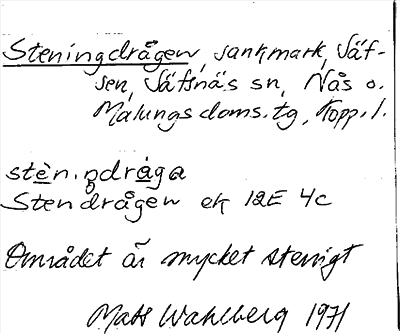 Steningdrågen, sankmark, Säf-
sen, Säfsnäs sn, Nås o.
Malungs doms.tg, Kopp. l.
stè̱n.ŋdrå̱ga
Stendrågen ek 12E 4c
Området är mycket stenigt
Mats Wahlberg 1971